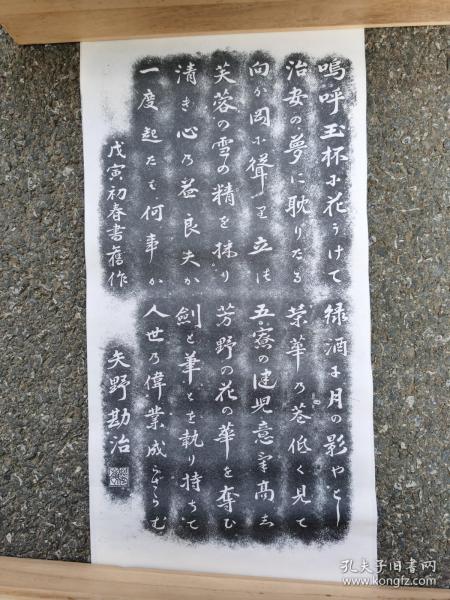 嗚呼玉杯に花うけて 緑酒に月の影やとし
治安の夢に耽りたる 榮華乃巷低く見て
向か岡に聳え立つ 五寮の健児意気高し
芙蓉の雪の精を採り 芳野の花の華を奪む
清き心乃益良夫か 剣と筆とを執り持ちて
一度起たは何事か 人世乃偉業成らざらむ
戊寅初春書舊作 矢野勘治
孔夫子旧书网
www.kongfz.com